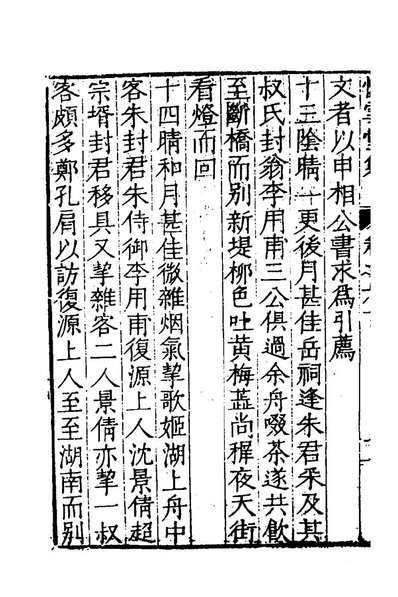 文者以申相公書求爲引薦
十三陰晴一更後月甚佳岳祠逢朱君采及其
叔氏封翁李用甫三公俱過余舟啜茶遂共飲
至斷橋而別新堤栁色吐黄梅蕋尚稺夜天街
看燈而回
十四晴和月甚佳微雜烟氣挈歌姬湖上舟中
客朱封君朱侍御李用甫復源上人沈景倩超
宗壻封君移具又挈雜客二人景倩亦挈一叔
客頗多鄭孔肩以訪復源上人至至湖南而别